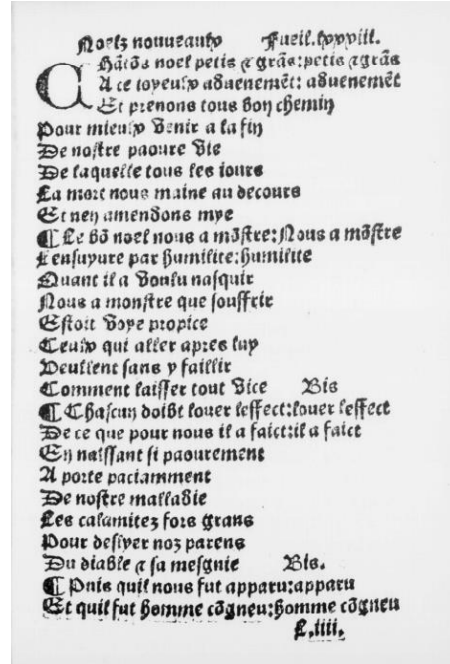 Noelz nouueaulx Fueil. lxxviii.
Chātōs noel petis ⁊ grās: petis ⁊ grās
A ce ioyeulx aduenemēt: aduenemēt
Et prenons tous bon chemin
Pour mieulx venir a la fin
De nostre paoure vie
De laquelle tous les iours
La mort nous maine au decours
Et nen amendons mye
¶ Le bō noel nous a mōstre: Nous a mōstre
Lensuyure par humilite: humilite
Quant il a voulu nasquir
Nous a monstre que souffrir
Estoit voye propice
Ceulx qui aller apres luy
Veullent sans y faillir
Comment laisser tout vice Bis
¶ Chascun doibt louer leffect: louer leffect
De ce que pour nous il a faict: il a faict
En naissant si paourement
A porte paciamment
De nostre malladie
Les calamitez fors grans
Pour deslyer noz parens
Du diable ⁊ sa mesgnie Bis.
¶ Puis quil nous fut apparu: apparu
Et quil fut homme cōgneu: homme cōgneu
L.iiii.